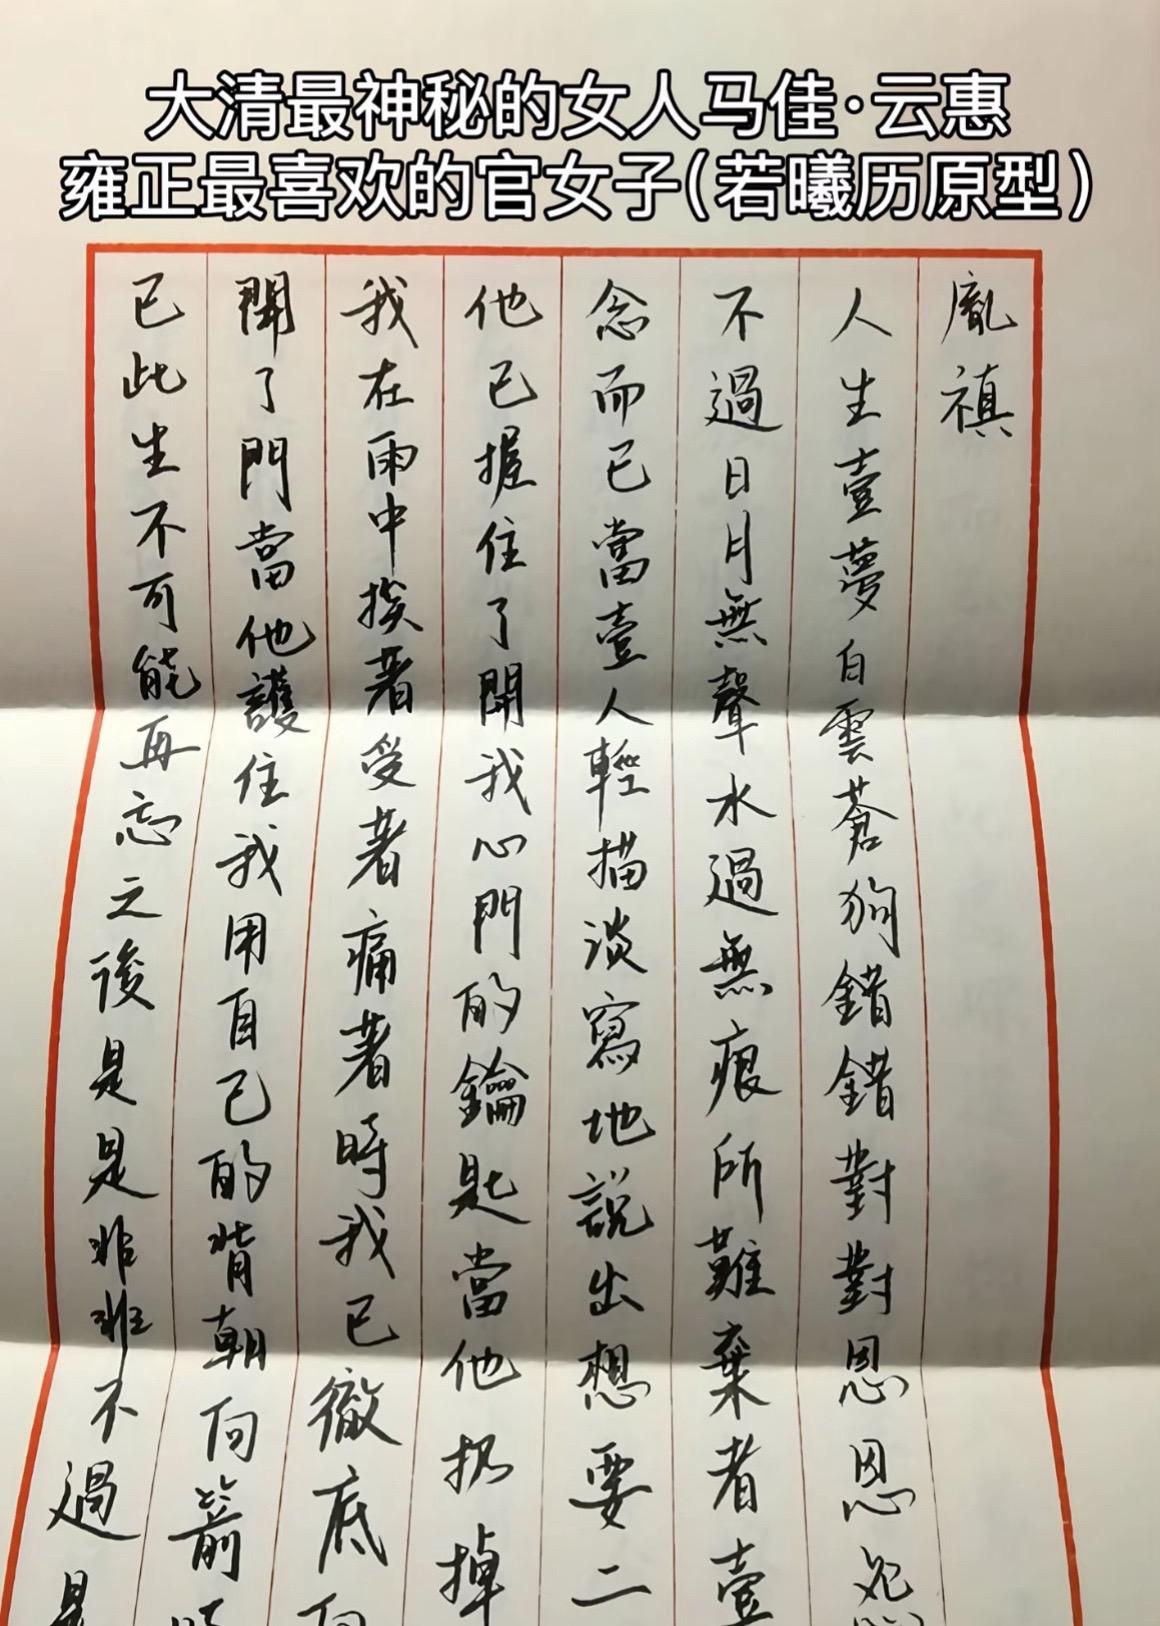 大清最神秘的女人马佳·云惠
雍正最喜欢的官女子(若曦历原型)
胤禛
人生壹夢白雲蒼狗錯錯對對恩恩
不過日月無聲水過無痕所難棄者壹
念而已當壹人輕描淡寫地説出想要二
他已握住了開我心門的鑰匙當他扔掉
我在雨中挨着受着痛着時我已徹底向
開了門當他護住我用自己的背朝向箭時
已此生不可能再忘之後是是非非不過是